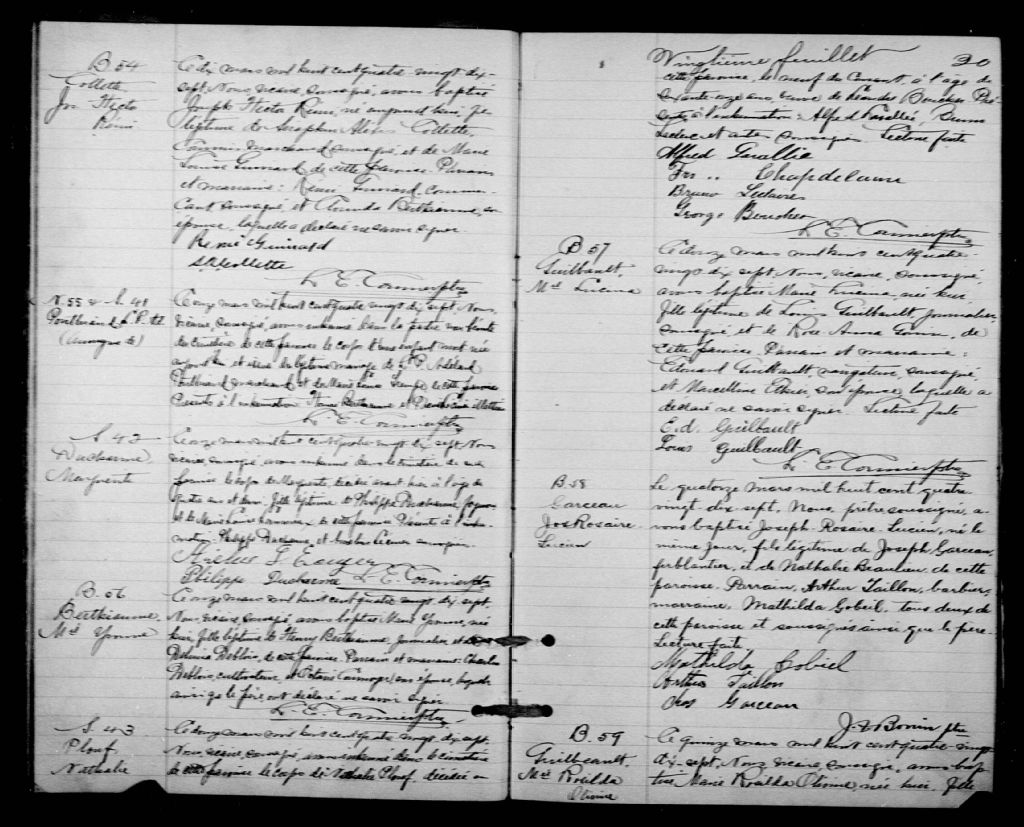 B 54
Collette
Jos Hector
Rémi
Ce dix mars mil huit cent quatre vingt dix-
sept, Nous, vicaire, soussigné, avons baptisé
Joseph Hector Rémi, né aujourd'hui, fils
légitime de Séraphin Collette
marchand soussigné, et de Marie
Louise Guinard de cette paroisse. Parrain
et marraine: Rémi Guinard commer-
çant soussigné, et Berthiaume, son
épouse, laquelle a déclaré ne savoir signer.
Remi Guinard
Collette
L. E. Cormier ptre
N. 55 & S. 41
(Anonyme de)
Ce onze mars mil huit cent quatre vingt dix sept, Nous,
vicaire, soussigné, avons inhumé dans la partie non bénite
du cimetière de cette paroisse le corps d'un enfant mort né
et issu du légitime mariage de L. P. Adélard
marchand et de Marie Louise de cette paroisse
Présents à l'inhumation Berthiaume et
L. E. Cormier ptre
S. 42
Ducharme
Marguerite
Ce onze mars mil huit cent quatre vingt dix sept, Nous
vicaire, soussigné, avons inhumé dans le cimetière de cette
paroisse le corps de Marguerite, décédée avant hier à l'âge de
quatre ans et demi, fille légitime de Philippe Ducharme
et de Marie Louise de cette paroisse. Présents à l'inhu-
mation Philippe Ducharme, et
Philippe Ducharme L. E. Cormier ptre
B. 56
Berthiaume
Mie Yvonne
Ce onze mars mil huit cent quatre vingt dix sept,
Nous, vicaire, soussigné, avons baptisé Marie Yvonne, née
hier, fille légitime de Henry Berthiaume, journalier et de
Delvina Deblois, de cette paroisse. Parrain et marraine: Charles
Deblois, cultivateur, et son épouse, lesquels
ainsi que le père, ont déclaré ne savoir signer.
L. E. Cormier ptre
S. 43
Plouf
Nathalie
Ce douze mars mil huit cent quatre vingt dix sept,
Nous, vicaire, soussigné, avons inhumé dans le cimetière
de cette paroisse le corps de Nathalie Plouf, décédée en
Vingtième feuillet 20
cette paroisse, le neuf du courant, à l'âge de
soixante-onze ans, veuve de Léandre Boucher. Pré-
sents à l'inhumation: Alfred Bruno
Leclerc et autres soussignés. Lecture faite
Alfred
Frs .. Chapdelaine
Bruno Leclaire
George Boucher
L. E. Cormier ptre
B 57
Guilbault,
Mie Lucina
Ce douze mars mil huit cent quatre-
vingt dix sept, Nous, vicaire, soussigné,
avons baptisé Marie Lucina, née hier,
fille légitime de Louis Guilbault, journalier,
soussigné et de Rose Anna de
cette paroisse. Parrain et marraine:
Edouard Guilbault navigateur soussigné,
et Marcelline son épouse, laquelle a
déclaré ne savoir signer. Lecture faite
E.d. Guilbault
Louis Guilbault
L. E. Cormier ptre
B 58
Garceau
Jos Rosaire
Lucien
Le quatorze mars mil huit cent quatre
vingt-dix-sept, Nous, prêtre soussigné, a-
vons baptisé Joseph-Rosaire-Lucien, né le
même jour, fils légitime de Joseph Garceau,
ferblantier, et de Nathalie Beaulieu, de cette
paroisse. Parrain, Arthur Taillon, barbier,
marraine, Mathilda Gobeil, tous deux de
cette paroisse et soussignés ainsi que le père.
Lecture faite
Mathilda Gobiel
Arthur Taillon
Jos Garceau
Bonin ptre
B. 59
Guilbeault,
Mie Rosilda
Ce quinze mars mil huit cent quatre vingt
dix-sept, Nous, vicaire, soussigné, avons bap-
tisé Marie Rosilda née hier, fille